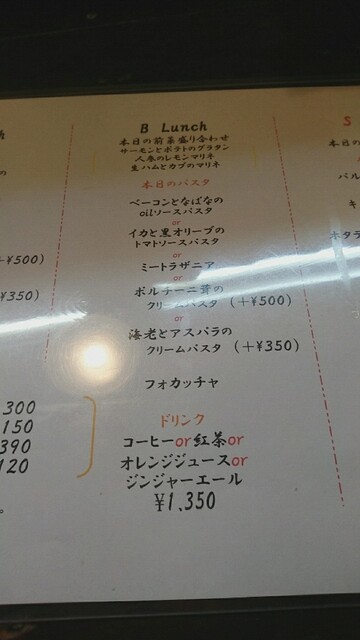 B Lunch
本日の前菜盛り合わせ
サーモンとポテトのグラタン
人参のレモンマリネ
生ハムとカブのマリネ
本日のパスタ
ベーコンとなばなの
oilソースパスタ
or
イカと黒オリーブの
トマトソースパスタ
or
ミートラザニア
or
ポルチーニ茸の
クリームパスタ (+¥500)
or
海老とアスパラの
クリームパスタ (+¥350)
フォカッチャ
ドリンク
コーヒーor紅茶or
オレンジジュースor
ジンジャーエール
¥1,350
+¥500)
¥350)
300
150
390
120
S